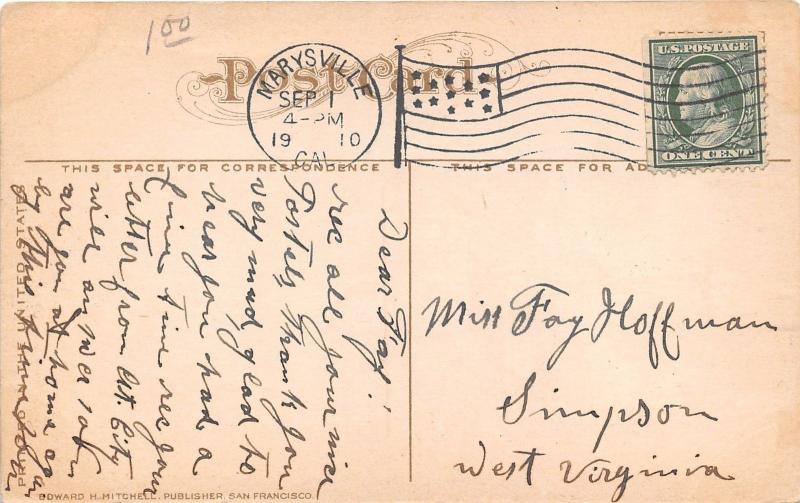 1.00
Post Card
MARYSVILLE
SEP 1
4-PM
1910
CAL.
U.S. POSTAGE
ONE CENT
THIS SPACE FOR CORRESPONDENCE
THIS SPACE FOR AD
Dear Fay!
rec all your nice
Postels, Thanks you
very much, glad to
hear you had a
fine time rec your
letter from At City
will answer soon
are you at home again
by this time
Miss Fay Hoffman
Simpson
West Virginia
PRINTED IN THE UNITED STATES
EDWARD H. MITCHELL, PUBLISHER, SAN FRANCISCO.